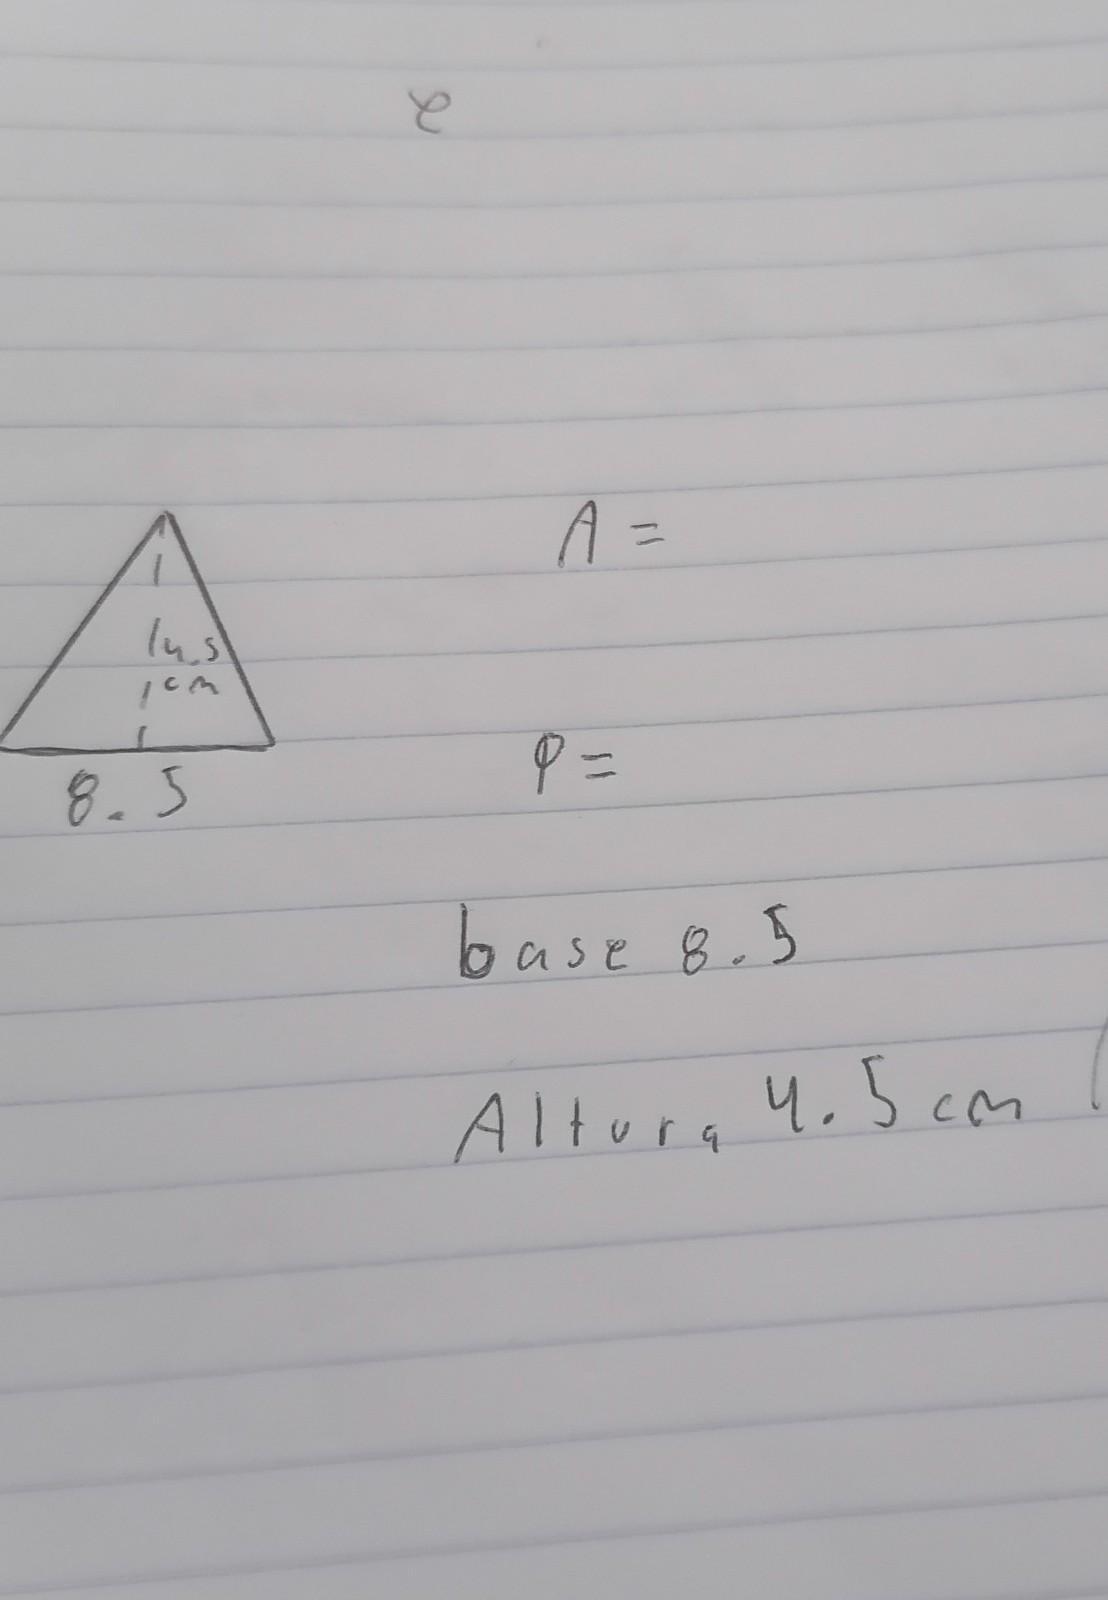 A =
4.5
cm
8.5
P =
base 8.5
Altura 4.5 cm